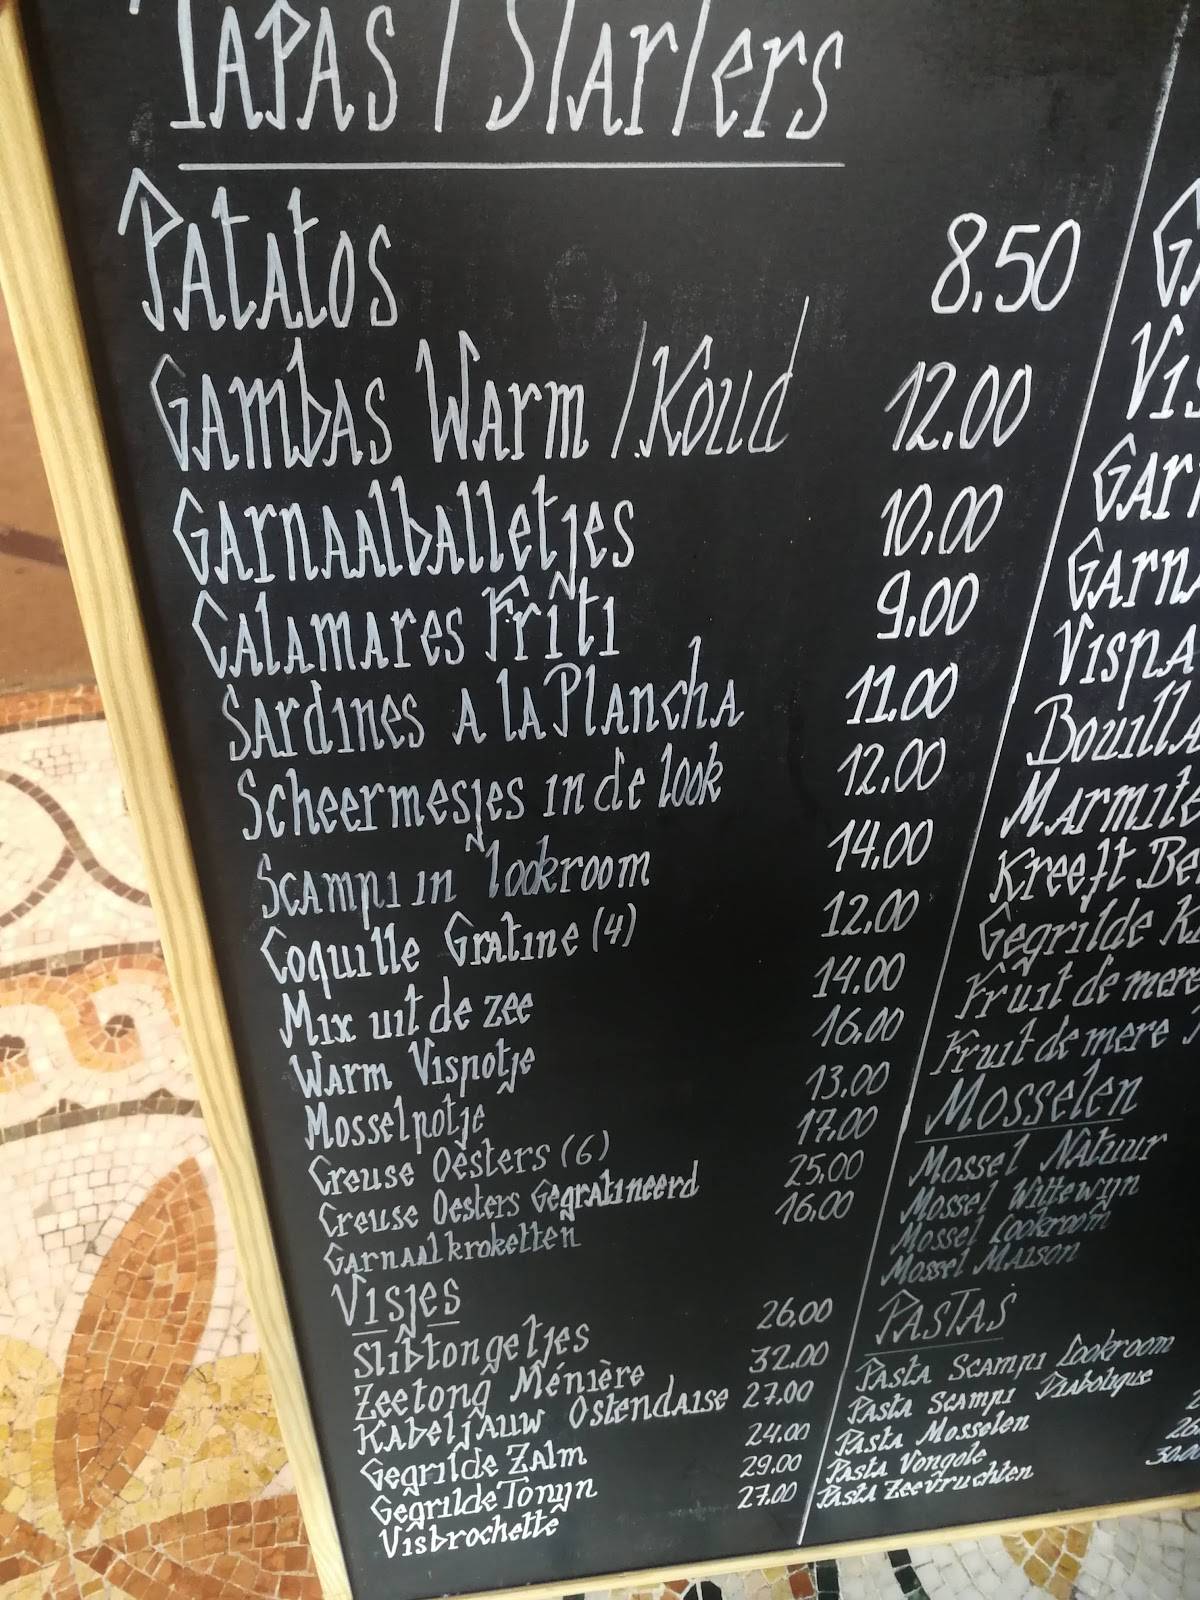 Tapas / Starters
Patatos 8.50
Gambas Warm / Koud 12.00
Garnaalballetjes 10.00
Calamares Friti 9.00
Sardines a la Plancha 11.00
Scheermesjes in de look 12.00
Scampi in lookroom 14.00
Coquille Gratine (4) 12.00
Mix uit de zee 14.00
Warm Vispotje 16.00
Mosselpotje 13.00
Creuse Oesters (6) 17.00
Creuse Oesters Gegratineerd 25.00
Garnaalkroketten 16.00
Visjes
Slibtongetjes 26.00
Zeetong Ménière 32.00
Kabeljauw Ostendaise 27.00
Gegrilde Zalm 24.00
Gegrilde Tonijn 29.00
Visbrochette 27.00
Bouilla
Marmite
Kreeft Bel
Gegrilde K
Fruit de mere
Fruit de mere
Mosselen
Mossel Natuur
Mossel Wittewijn
Mossel Lookroom
Mossel Maison
Pastas
Pasta Scampi Lookroom
Pasta Scampi Diabolique
Pasta Mosselen
Pasta Vongole
Pasta Zeevruchten